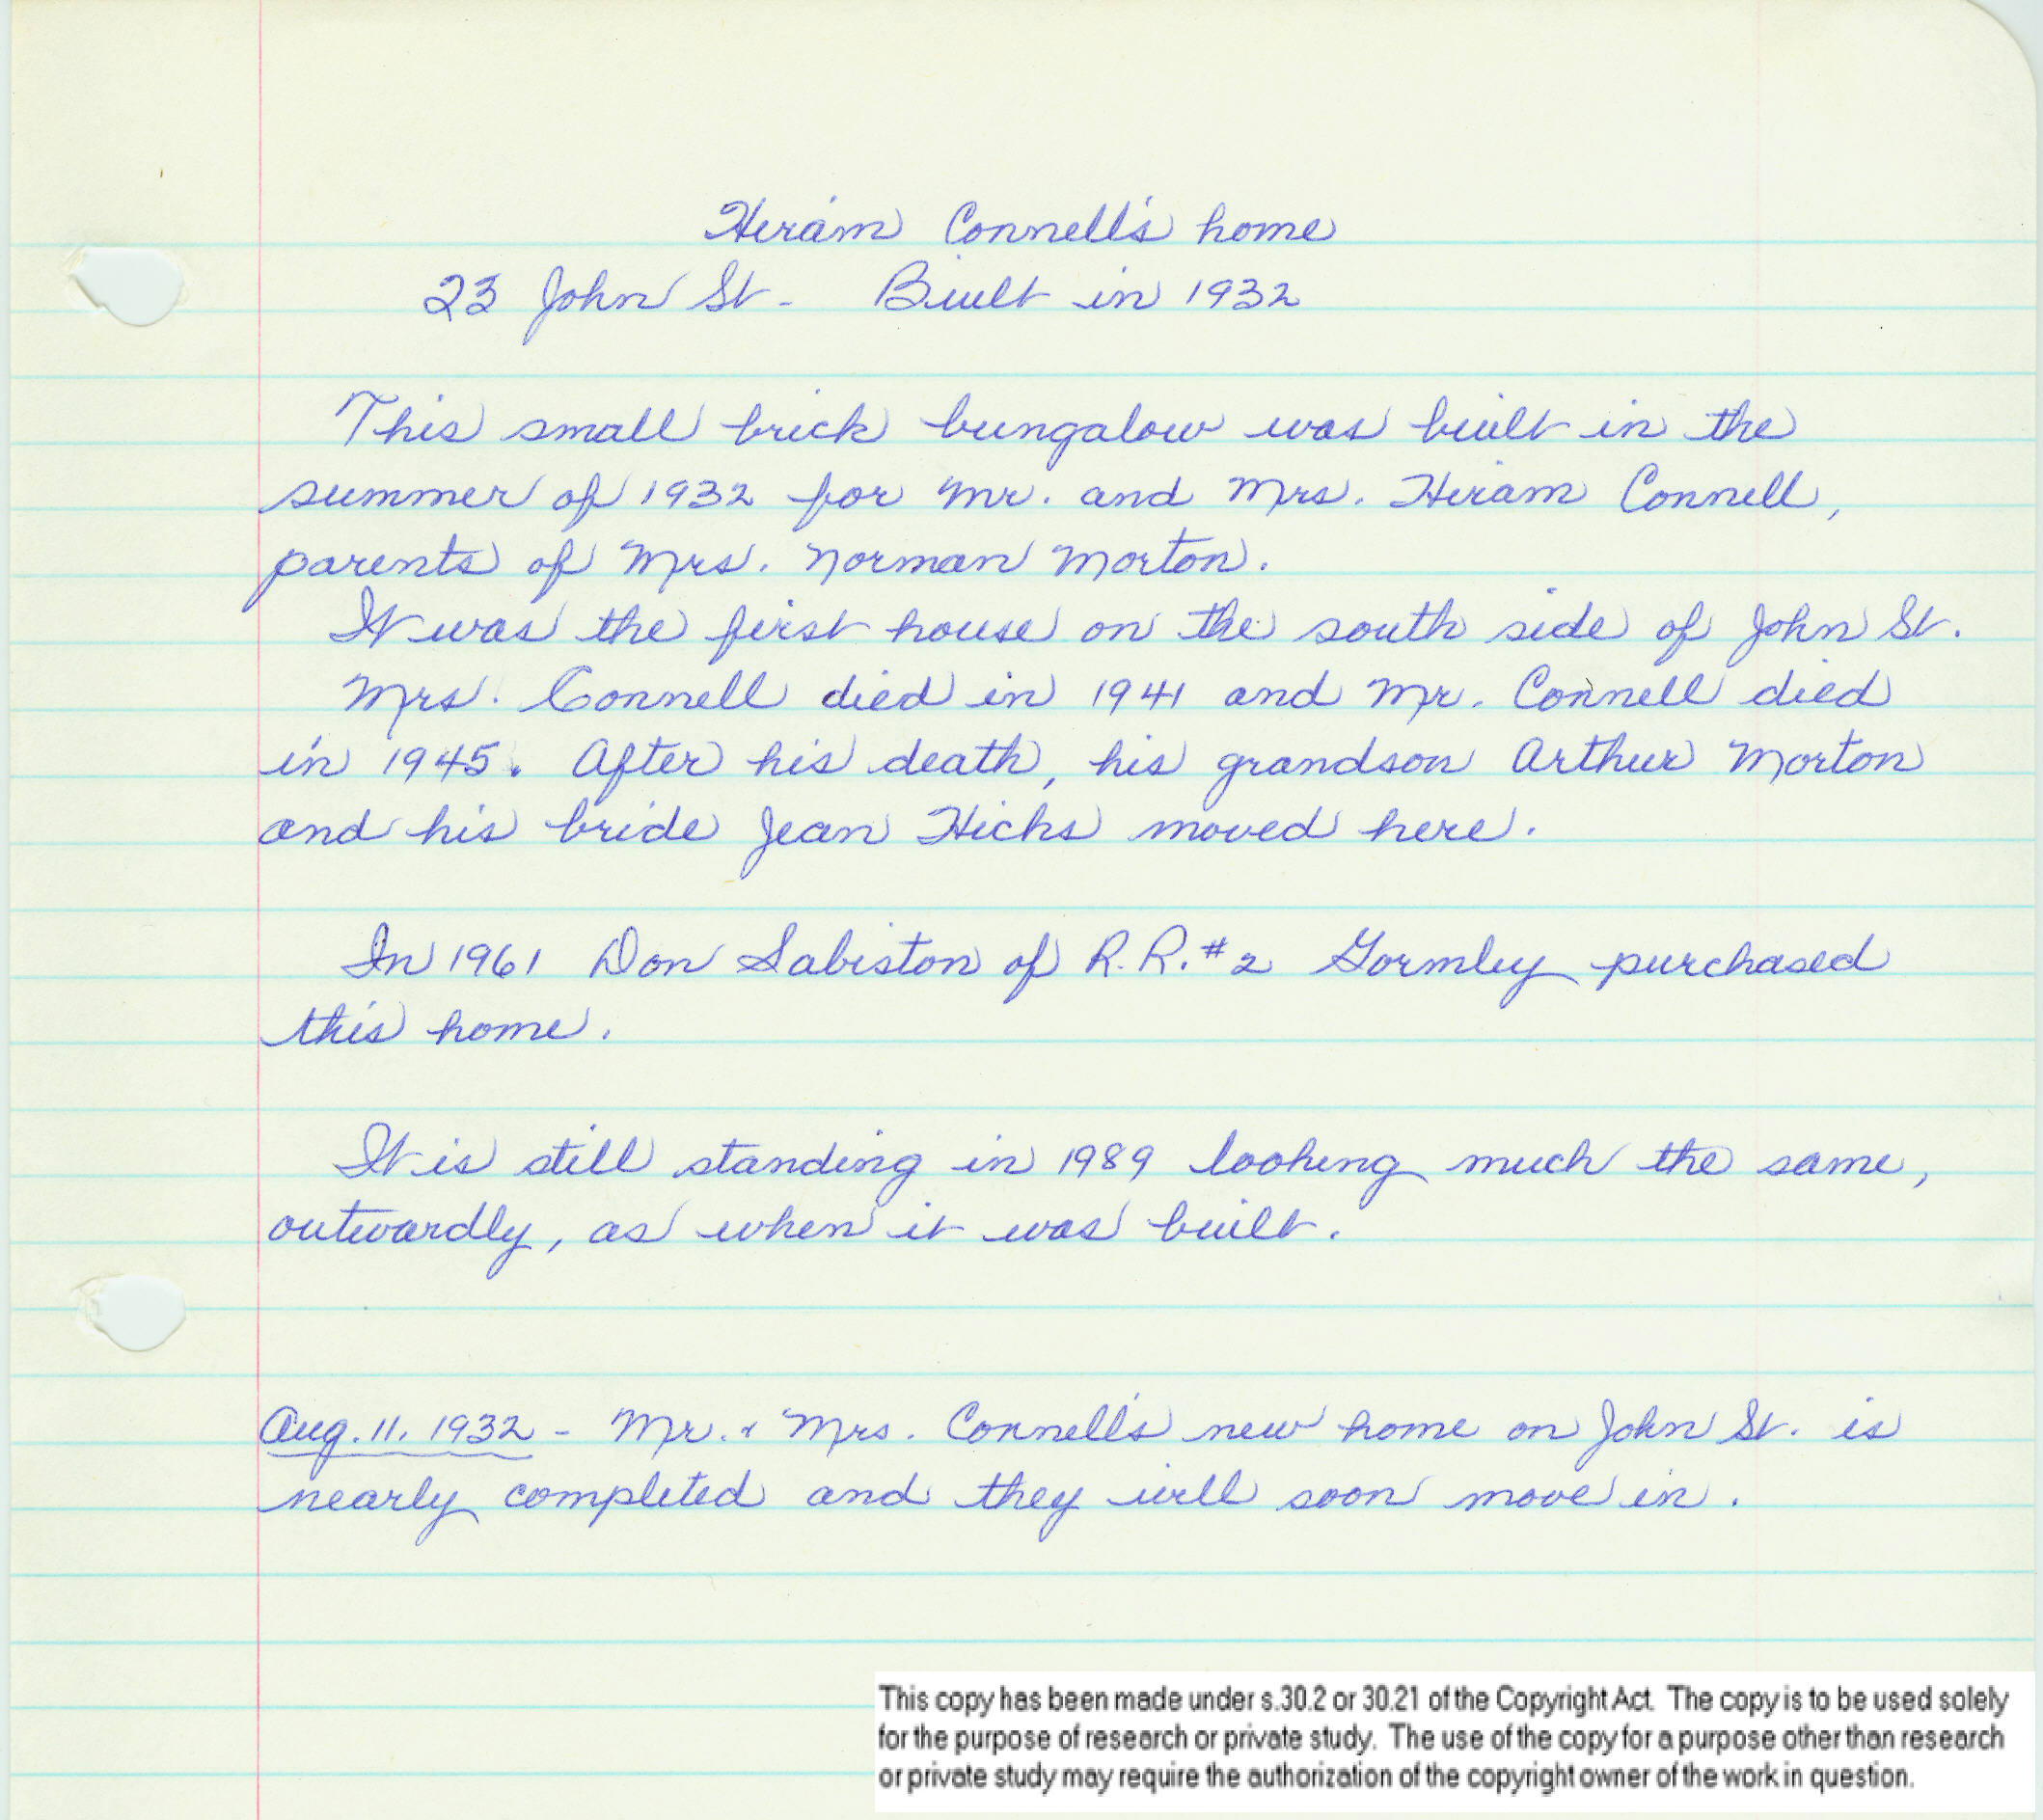 Hiram Connell's home
23 John St. Built in 1932
This small brick bungalow was built in the
summer of 1932 for Mr. and Mrs. Hiram Connell,
parents of Mrs. Norman Morton.
It was the first house on the south side of John St.
Mrs. Connell died in 1941 and Mr. Connell died
in 1945. After his death, his grandson Arthur Morton
and his bride Jean Hicks moved here.
In 1961 Don Sabiston of R.R. #2 Gormley purchased
this home.
It is still standing in 1989 looking much the same,
outwardly, as when it was built.
Aug. 11, 1932 - Mr. & Mrs. Connell's new home on John St. is
nearly completed and they will soon move in.
This copy has been made under s.30.2 or 30.21 of the Copyright Act. The copy is to be used solely
for the purpose of research or private study. The use of the copy for a purpose other than research
or private study may require the authorization of the copyright owner of the work in question.